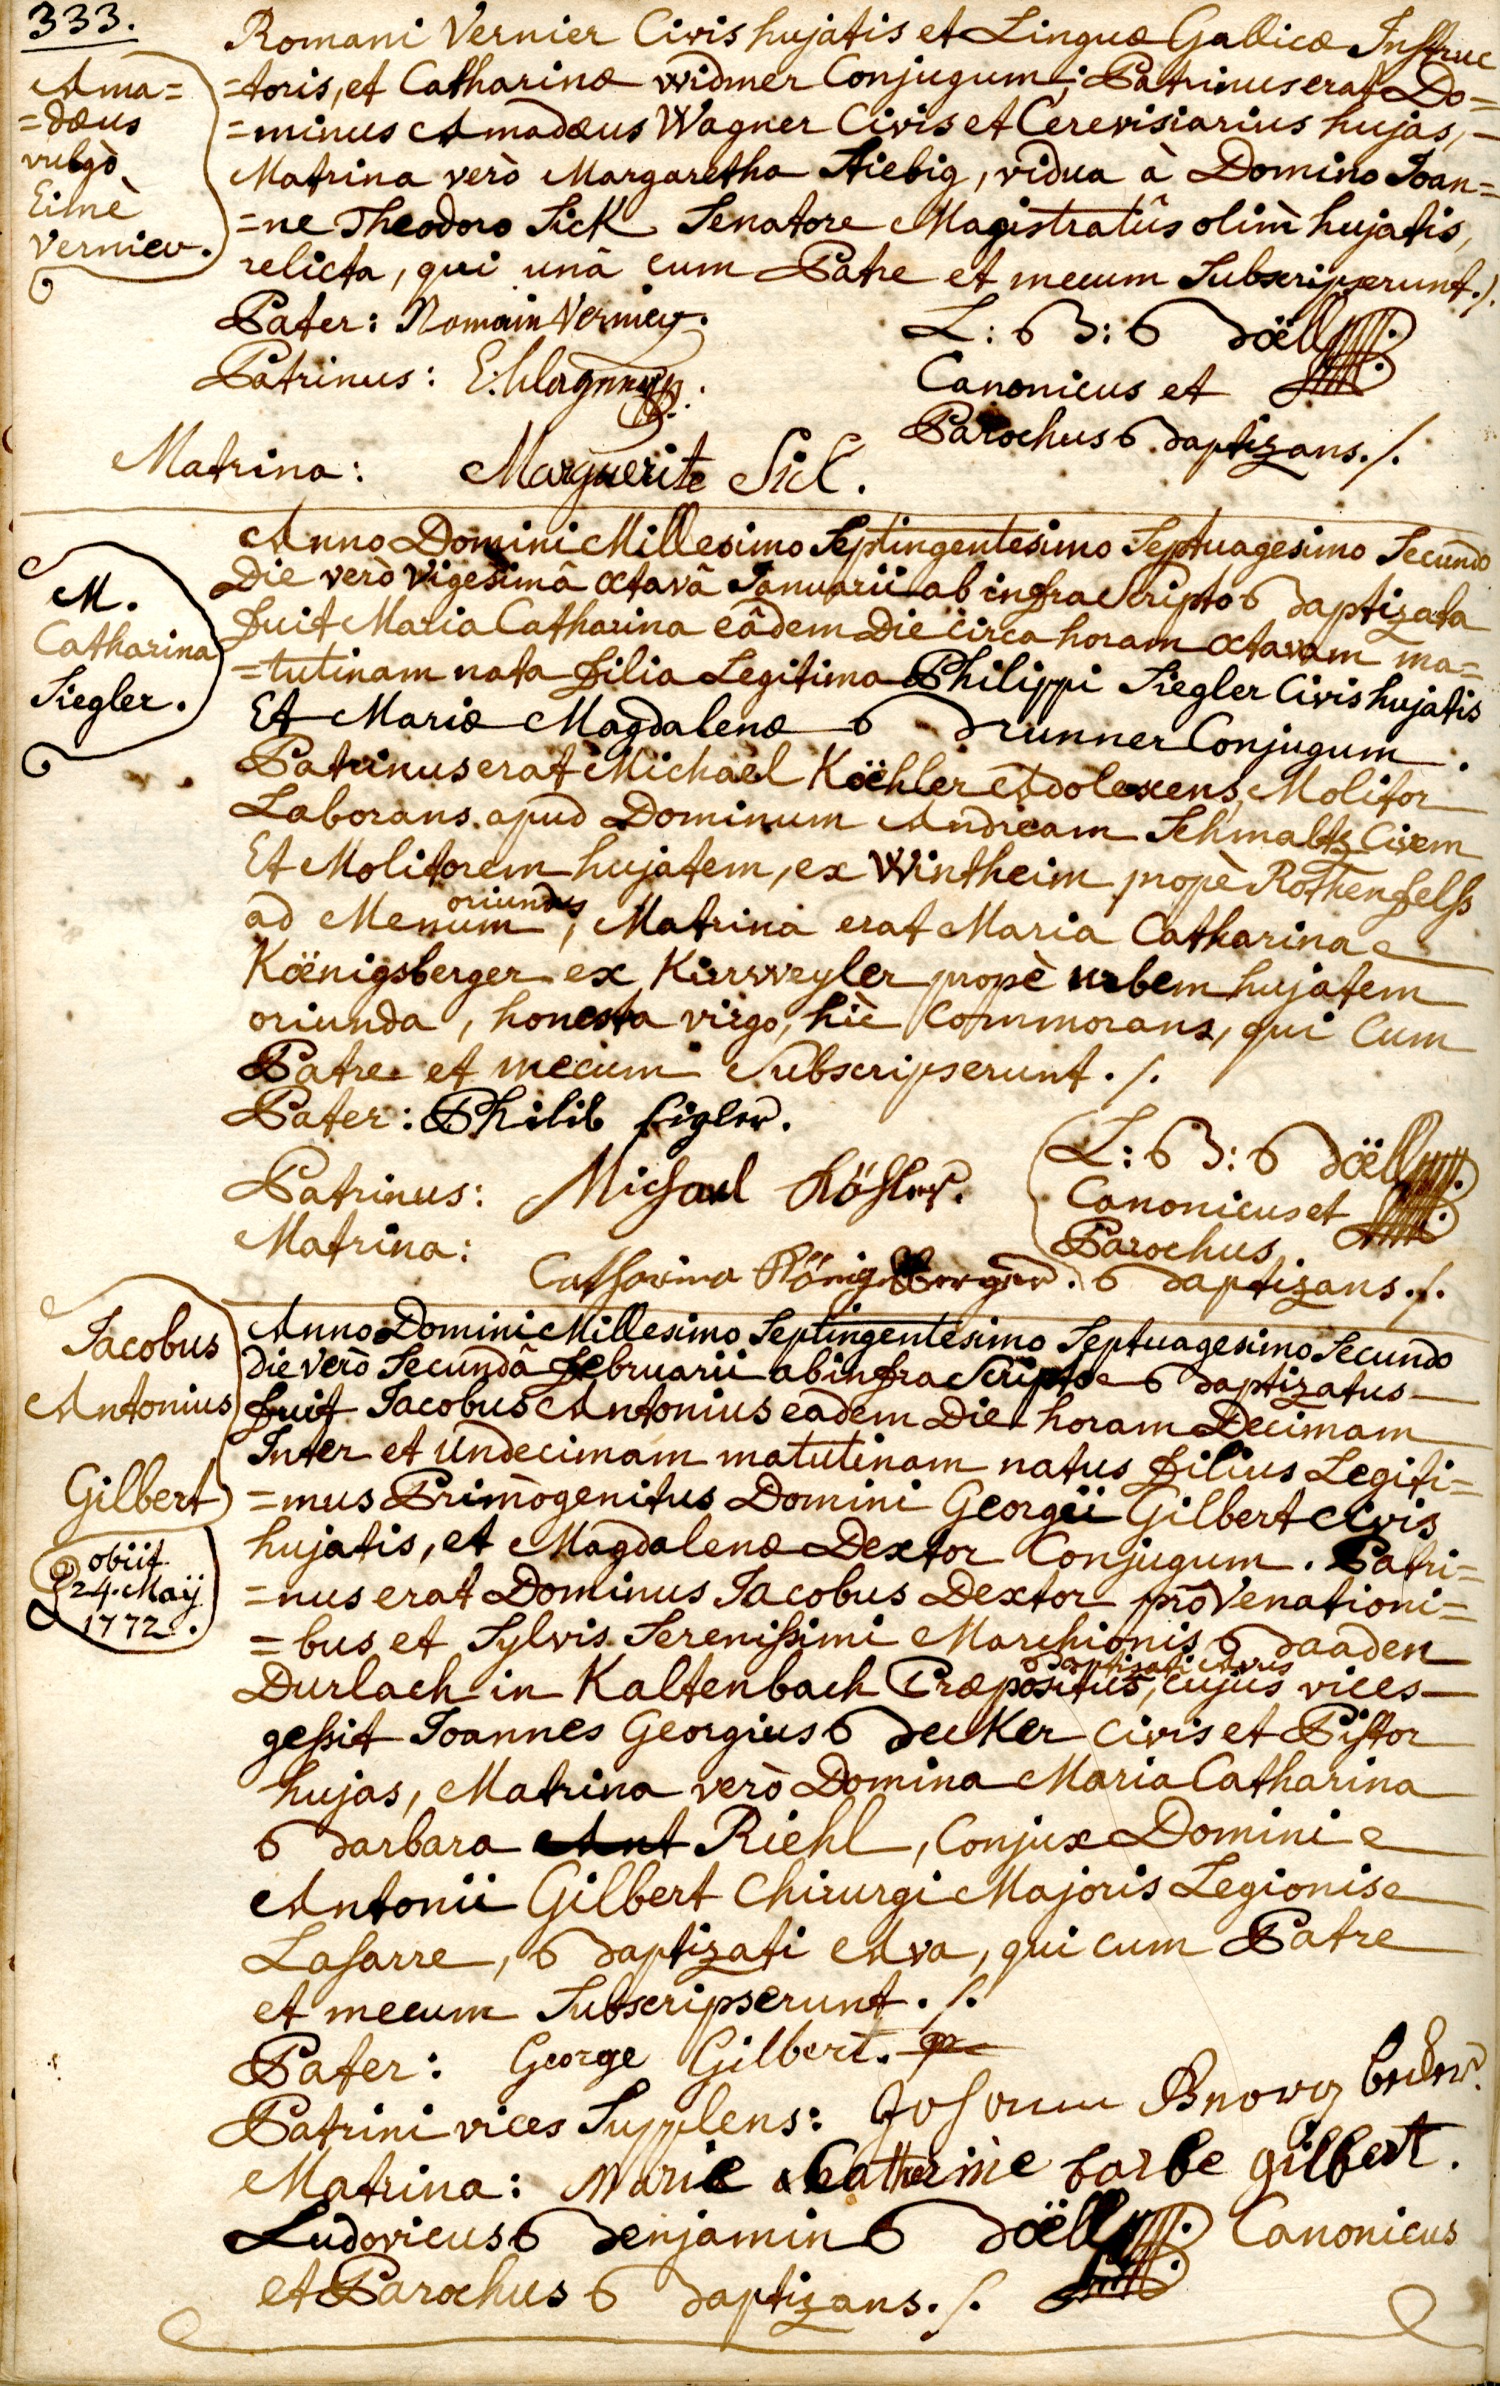 333.
Ama=
=dæus
vulgò
Eimè
Vernier.
Romani Vernier Civis hujatis et Linguæ Gallicæ Instruc
=toris, et Catharinæ Widmer Conjugum; Patrinus erat Do=
=minus Amadæus Wagner Civis et Cerevisiarius hujas,
Matrina verò Margaretha Stiebig, vidua à Domino Ioan=
=ne Theodoro Sick Senatore Magistratûs olim hujatis,
relicta, qui unâ cum Patre et mecum Subscripserunt./.
Pater: Romain Vernier.
Patrinus: E: Wagner
Matrina: Marguerite Sick.
L: B: Boëll
Canonicus et
Parochus Baptizans./.
M.
Catharina
Siegler.
Anno Domini Millesimo Septingentesimo Septuagesimo Secundo
Die verò Vigesimâ Octavâ Ianuarii ab infra Scripto Baptizata
fuit Maria Catharina eâdem Die circa horam Octavam ma=
=tutinam nata filia Legitima Philippi Siegler Civis hujatis
Et Mariæ Magdalenæ Brunner Conjugum.
Patrinus erat Michaël Köehler Adolescens, Molitor
Laborans apud Dominum Andream Schmaltz Civem
Et Molitorem hujatem, ex Wintheim propè Rothenfelß
ad Menum oriundus, Matrina erat Maria Catharina
Köenigsberger ex Kirrweyler propè urbem hujatem
oriunda, honesta virgo, hìc Commorans, qui Cum
Patre et mecum Subscripserunt./.
Pater: Philib Sigler.
Patrinus: Michael Köhler.
Matrina: Catharina Königsberger.
L: B: Boëll
Canonicus et
Parochus
Baptizans./.
Iacobus
Antonius
Gilbert
obiit
24. Maÿ
1772.
Anno Domini Millesimo Septingentesimo Septuagesimo Secundo
Die Verò Secundâ Februarii ab infra Scripto Baptizatus
fuit Iacobus Antonius eadem Die horam Decimam
Inter et Undecimam matutinam natus filius Legiti=
=mus Primògenitus Domini Georgii Gilbert Civis
hujatis, et Magdalenæ Dextor Conjugum. Patri=
=nus erat Dominus Iacobus Dextor prò Venationi=
=bus et Sylvis Serenissimi Marchionis Baaden
Durlach in Kaltenbach Præpositus, Baptizati Avus cujus vices
gessit Ioannes Georgius Becker Civis et Pistor
hujas, Matrina verò Domina Maria Catharina
Barbara Ant Riehl, Conjux Domini
Antonii Gilbert Chirurgi Majoris Legionis
Lasarre, Baptizati Ava, qui cum Patre
et mecum Subscripserunt./.
Pater: George Gilbert.
Patrini vices Supplens: Johann Georg becker.
Matrina: Marie Catherine barbe gilbert.
Ludovicus Benjamin Boëll Canonicus
et Parochus Baptizans./.